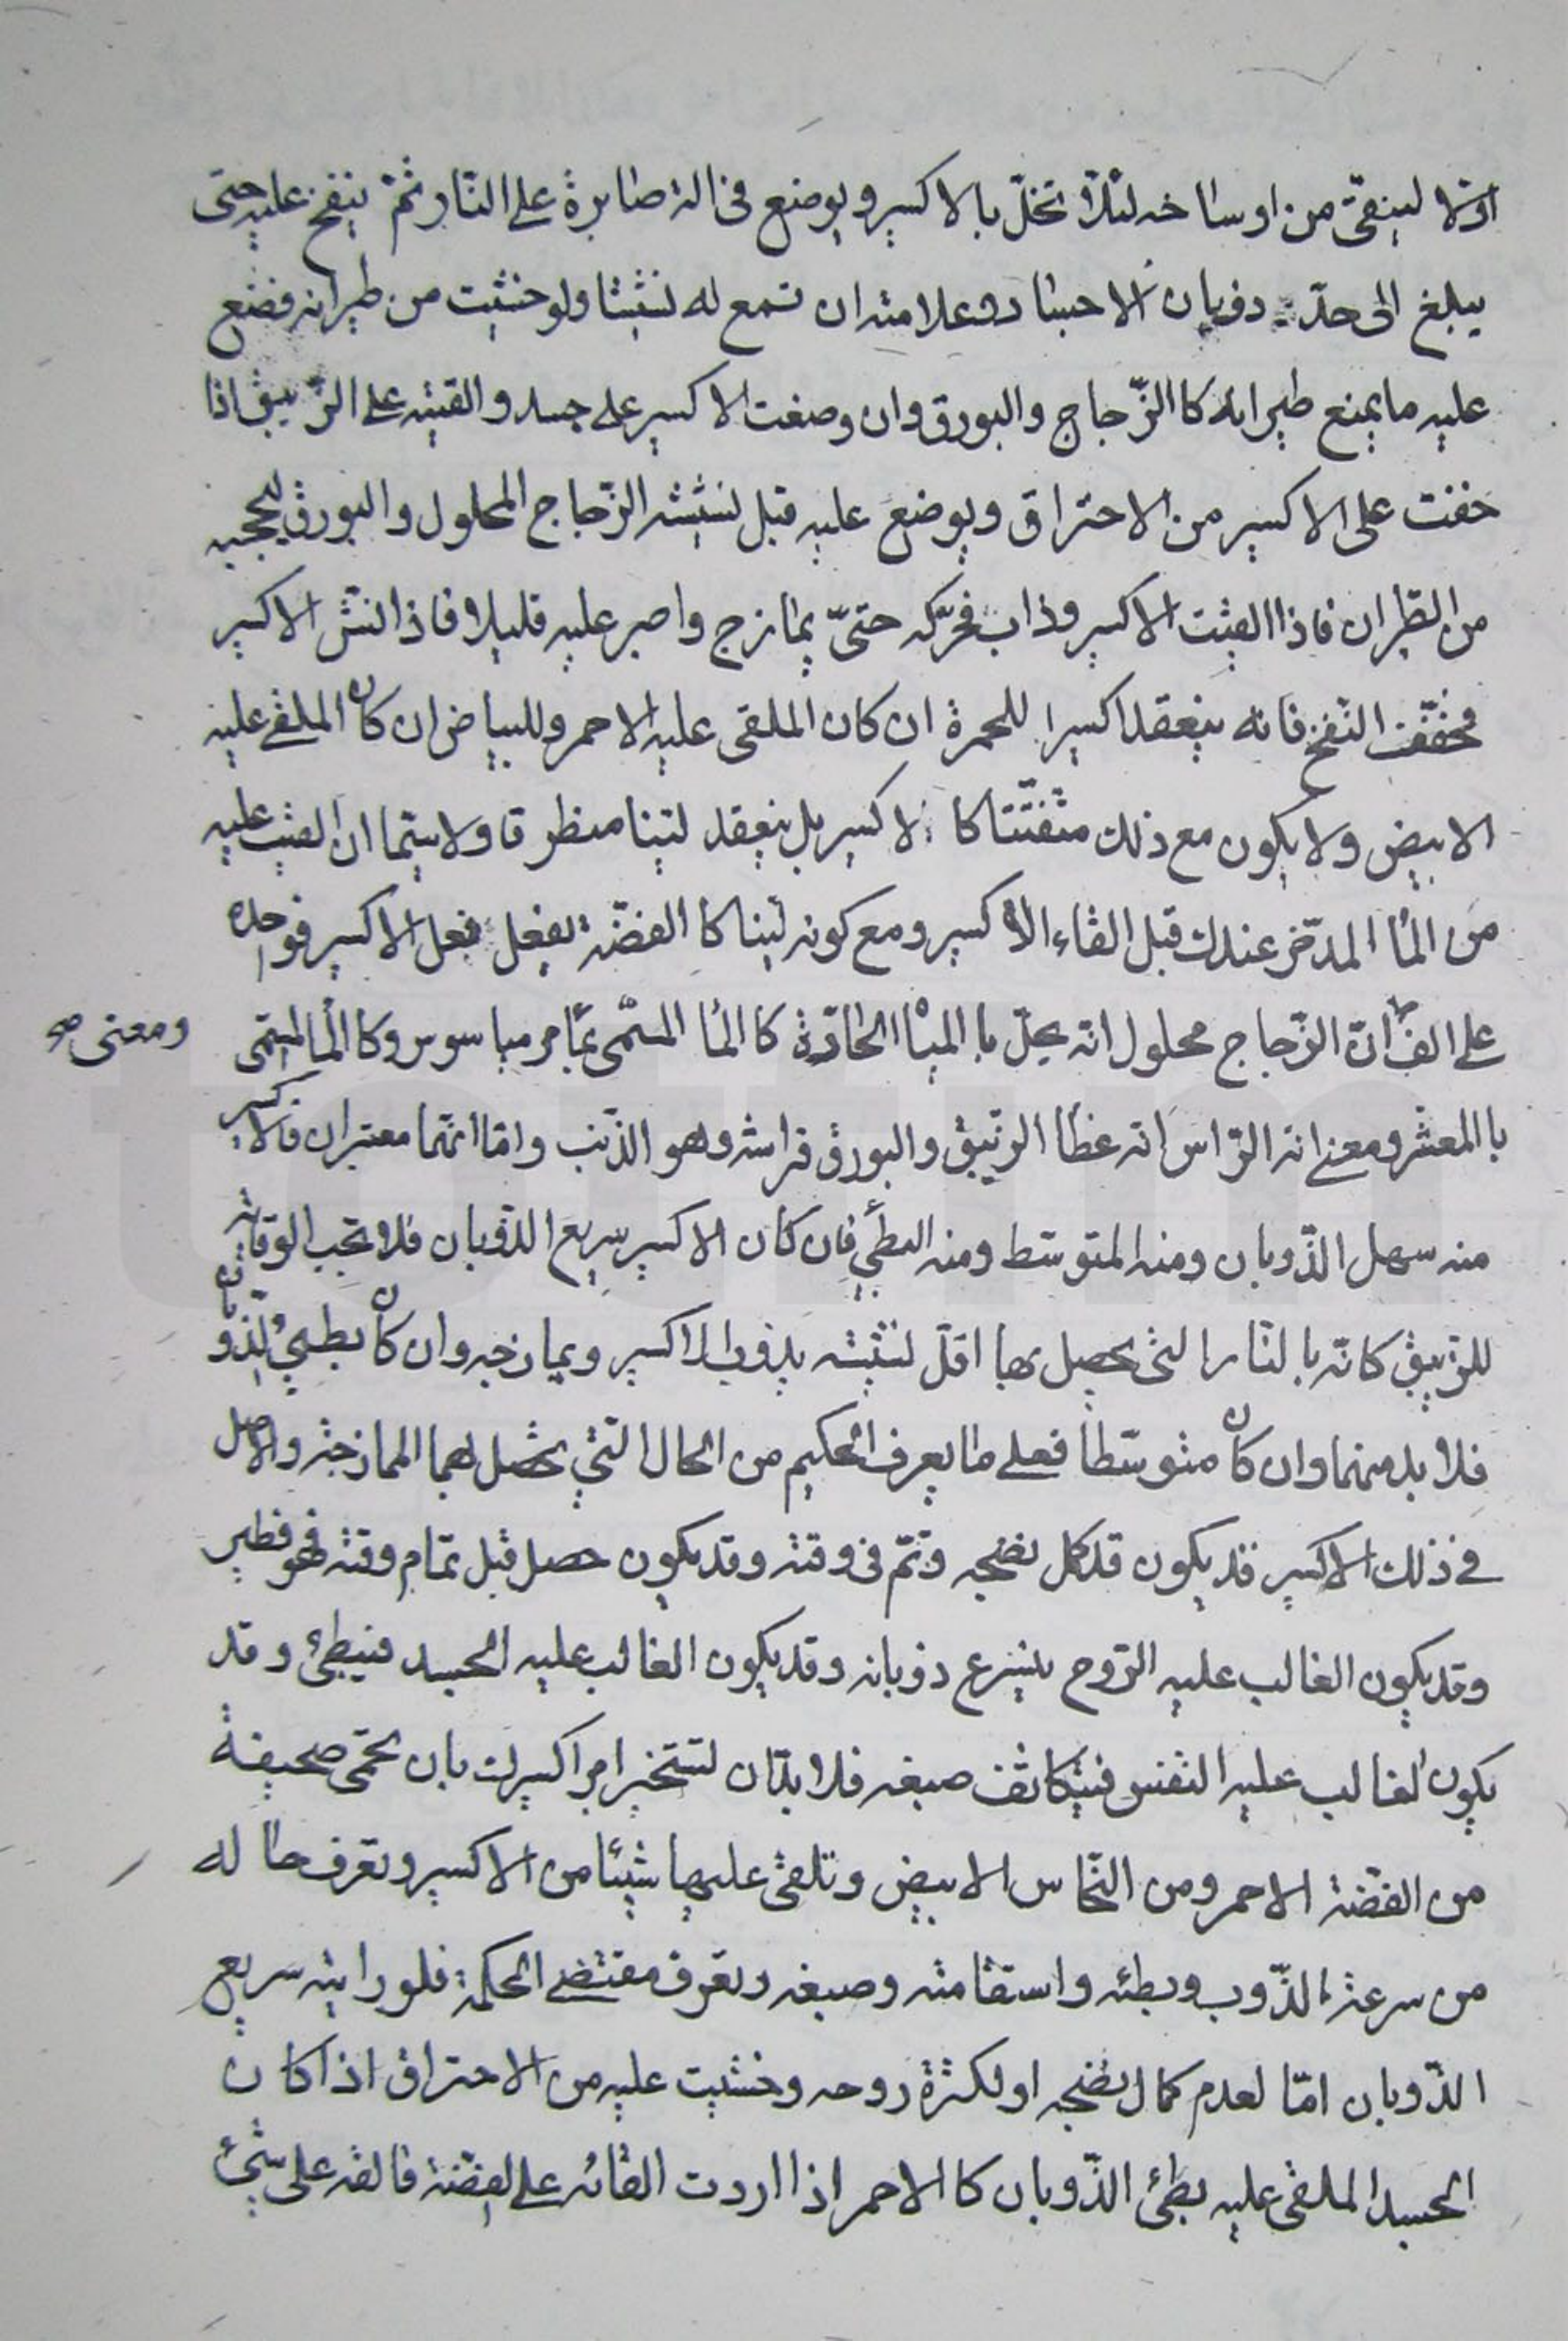 اولا لينقى من اوساخه لئلا تخلّ بالاكسير ويوضع فى الة صابرة على النار ثمّ ينفخ عليه حتى
يبلغ الى حدّ ذوبان الاجساد وعلامته ان تسمع له نشيشا ولو خشيت من طيرانه فضع
عليه ما يمنع طيرانه كا الزّجاج والبورق وان وضعت الاكسير على جسد والقيته على الزّيبق اذا
خفت على الاكسير من الاحتراق ويوضع عليه قبل نشيشه الزّجاج المحلول والبورق ليحجبه
من الطّيران فاذا القيت الاكسير وذاب فحرّكه حتىّ يمازج واصبر عليه قليلا فاذا نشّ الاكسير
فخفّف النّفخ فانه ينعقد اكسيرا للحمرة ان كان الملقى عليه الاحمر وللبياض ان كان الملقى عليه
الابيض ولا يكون مع ذلك متفتّتا كا الاكسير بل ينعقد لينا منطرقا ولا سيّما ان القيت عليه
من المأ المدّخر عندك قبل القاء الاكسير ومع كونه لينا كا الفضّة يفعل فعل الاكسير فواحده
على الف انّ الزّجاج محلول انّه يحلّ با الميأ الحادّة كا المأ المسمّى بمأ مرمباسوس وكا المأ المسمّى
ومعنى صح
با المعشر ومعنى انه الرّاس انه غطأ الزّيبق والبورق فراشه وهو الذّنب وامّا انّهما معتبران فالاكسير
منه سهل الذّوبان ومنه المتوسّط ومنه البطئ فان كان الاكسير سريع الذّوبان فلا تجب الوقاية
للزّيبق كانّه با لنّار التى يحصل بها اقلّ نشيشه يذوب الاكسير ويمازجه وان كان بطيئ الذّوبان
فلا بد منهما وان كان متوسّطا فعلى ما يعرف الحكيم من الحال التي يحصل بهما الممازجة والاصل
فى ذلك الاكسير قد يكون قد كمل نضجه وتمّ فى وقته وقد يكون حصل قبل تمام وقته فهو فطير
وقد يكون الغالب عليه الرّوح فيسرع ذوبانه وقد يكون الغالب عليه الجسد فيبطئ وقد
يكون الغالب عليه النّفس فيتكاثف صبغه فلا بدّ ان تستخبر امر اكسيرك بان تحمى صحيفة
من الفضّة الاحمر ومن النّحاس الابيض وتلقى عليها شيئا من الاكسير وتعرف حاله
من سرعة الذّوب وبطئه واستقامته وصبغه وتعرف مقتضى الحكمة فلو رايته سريع
الذّوبان امّا لعدم كمال نضجه او لكثرة روحه وخشيت عليه من الاحتراق اذا كان
الجسد الملقى عليه بطئ الذّوبان كا الاحمر اذا اردت القائه على الفضّة فالقه على شئ